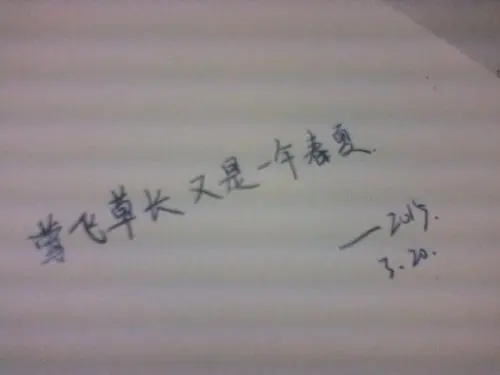 莺飞草长又是一年春夏.
—2015.
3.20.